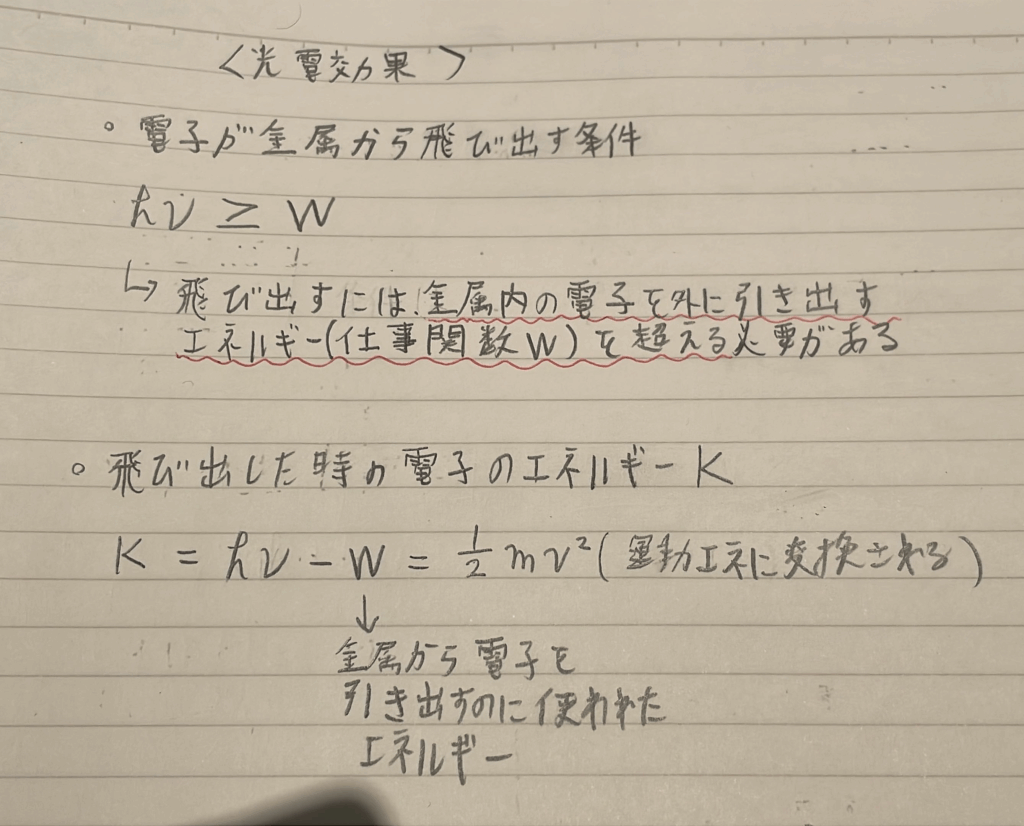 <光電効果>
。電子が金属から飛び出す条件
hν ≧ W
↳ 飛び出すには金属内の電子を外に引き出す
エネルギー(仕事関数W)を超える必要がある
。飛び出した時の電子のエネルギーK
K = hν − W = 1/2 mv² (運動エネに変換される)
↓
金属から電子を
引き出すのに使われた
エネルギー